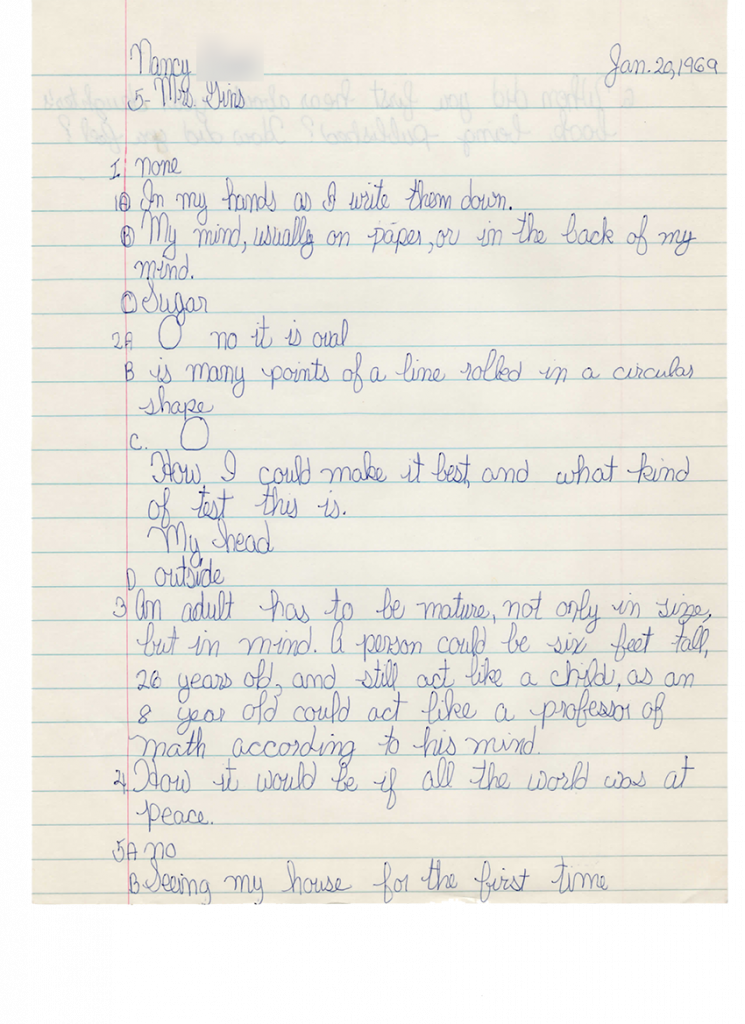 Nancy
Jan. 20, 1969
5- Mrs. Gins
I none
1A In my hands as I write them down.
B My mind, usually on paper, or in the back of my
mind.
C Sugar
2A no it is oval
B is many points of a line rolled in a circular
shape
C.
How I could make it best, and what kind
of test this is.
My head
D outside
3 An adult has to be mature, not only in size,
but in mind. A person could be six feet tall,
28 years old, and still act like a child, as an
8 year old could act like a professor of
math according to his mind.
4 How it would be if all the world was at
peace.
5A no
B. Seeing my house for the first time